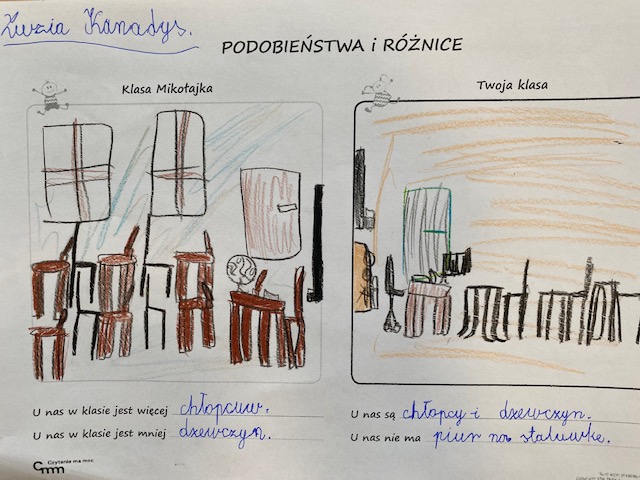 Zuzia Kanadys.
PODOBIEŃSTWA i RÓŻNICE
Klasa Mikołajka
Twoja klasa
U nas w klasie jest więcej chłopcuw.
U nas w klasie jest mniej dzewczyn.
U nas są chłopcy i dzewczyn.
U nas nie ma piur na staluwkę.
Czytanie ma moc
cmm